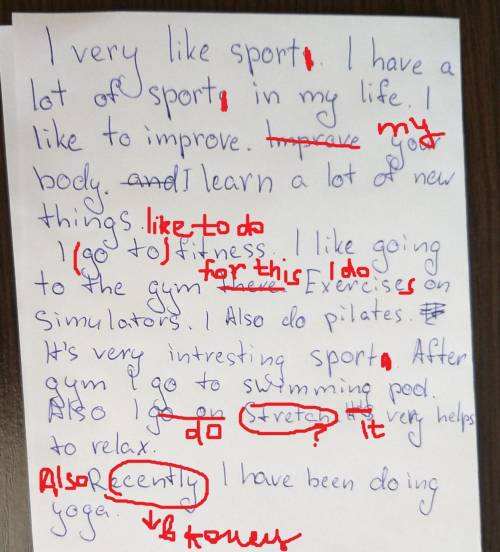 I very like sport. I have a
lot of sport in my life. I
like to improve. Improve my your
body. and I learn a lot of new
things. like to do
I (go to) fitness. I like going
for this I do
to the gym there Exercises on
simulators. I Also do pilates.
It's very intresting sport. After
gym I go to swimming pool.
Also I go on Stretch. It's very helps
do ? It
to relax.
Also Recently I have been doing
yoga. в конец